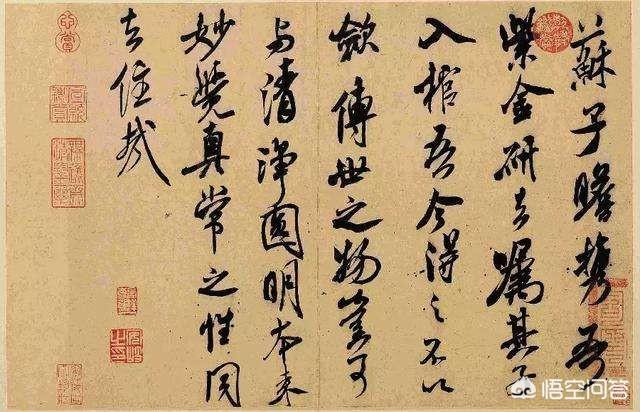 蘇子瞻携吾
紫金研去嘱其子
入棺吾今得之不以
歛傳世之物豈可
与清淨圓明本来
妙覺真常之性同
去住哉
悟空问答